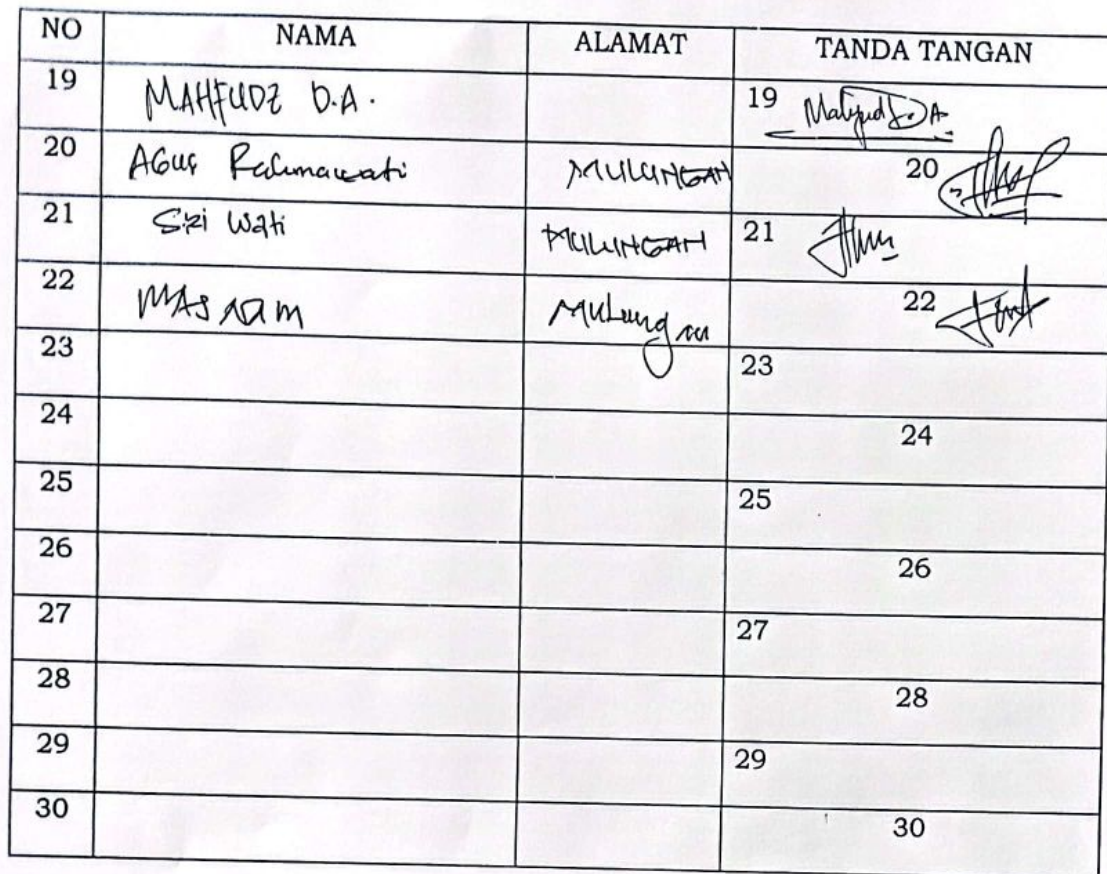 NO NAMA ALAMAT TANDA TANGAN
19 MAHFUDZ D.A. 19 Mahfud D.A
20 Agus Rahmawati MULUNGAN 20
21 Sri Wati MULUNGAN 21
22 MASNAM Mulungan 22
23 23
24 24
25 25
26 26
27 27
28 28
29 29
30 30